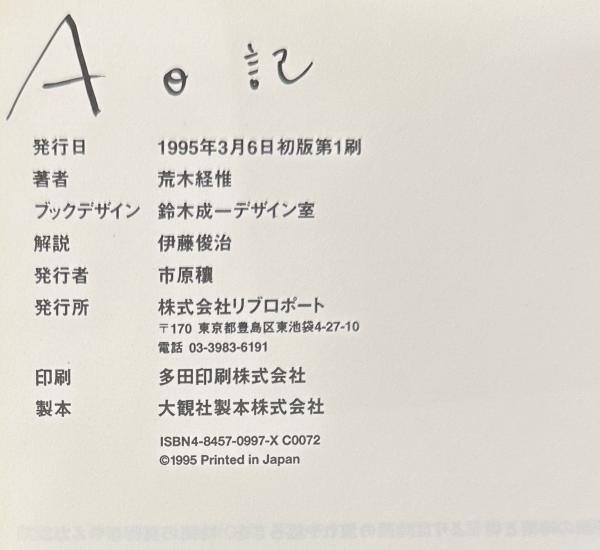 A日記
発行日 1995年3月6日初版第1刷
著者 荒木経惟
ブックデザイン 鈴木成一デザイン室
解説 伊藤俊治
発行者 市原穰
発行所 株式会社リブロポート
〒170 東京都豊島区東池袋4-27-10
電話 03-3983-6191
印刷 多田印刷株式会社
製本 大観社製本株式会社
ISBN4-8457-0997-X C0072
©1995 Printed in Japan